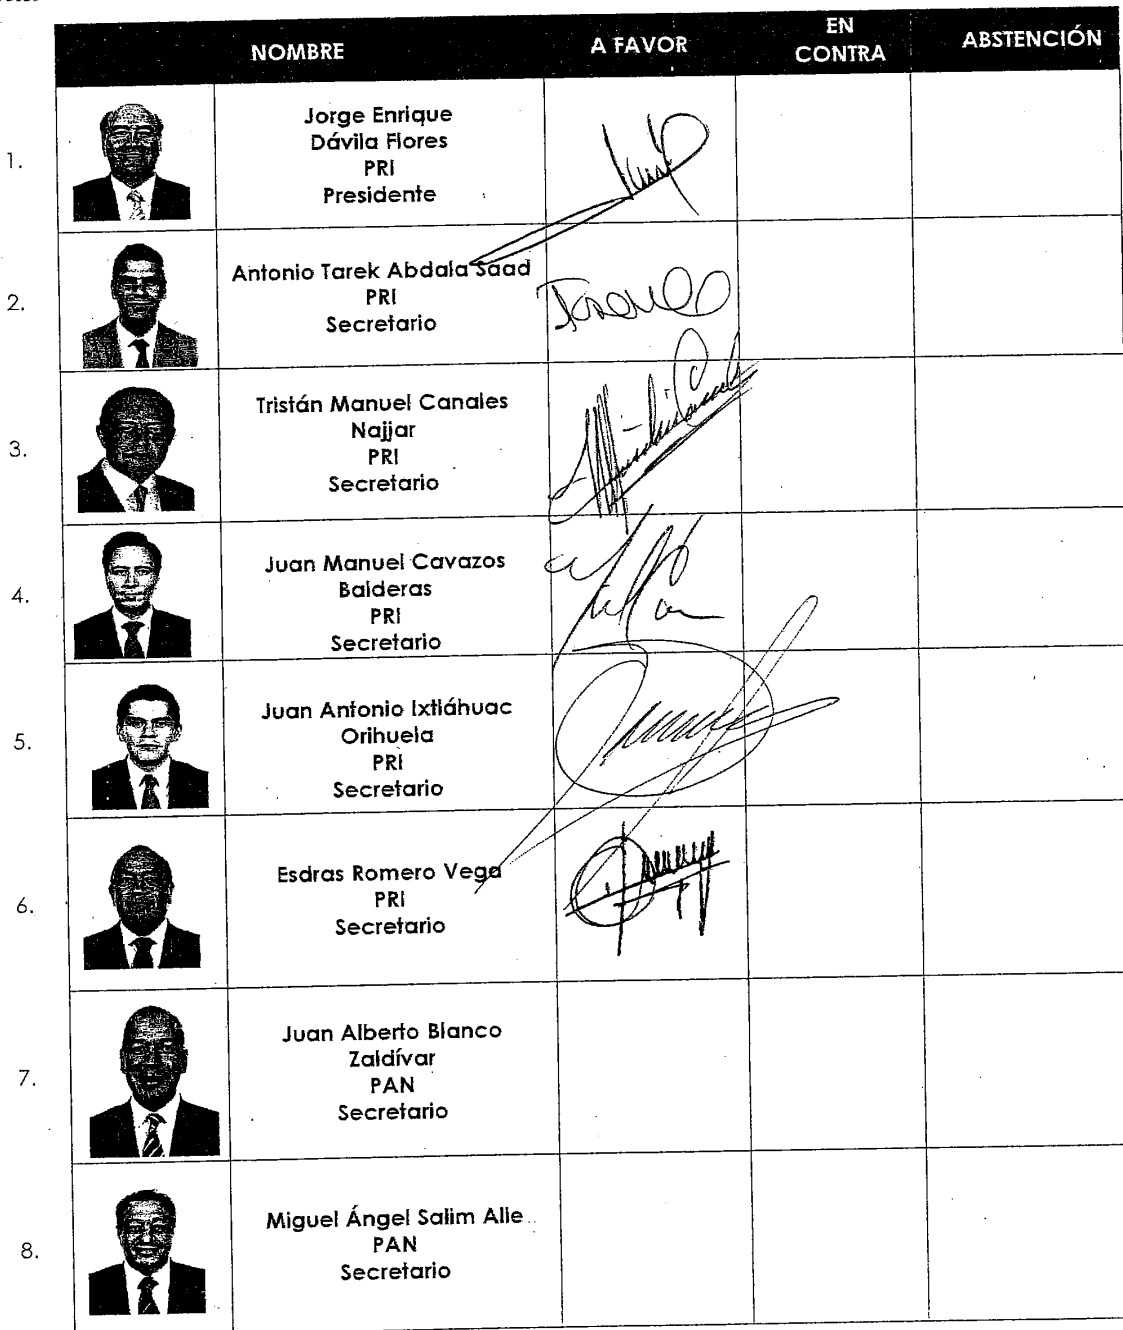 NOMBRE A FAVOR EN CONTRA ABSTENCIÓN
1. Jorge Enrique
Dávila Flores
PRI
Presidente
2. Antonio Tarek Abdala Saad
PRI
Secretario
3. Tristán Manuel Canales
Najjar
PRI
Secretario
4. Juan Manuel Cavazos
Balderas
PRI
Secretario
5. Juan Antonio Ixtláhuac
Orihuela
PRI
Secretario
6. Esdras Romero Vega
PRI
Secretario
7. Juan Alberto Blanco
Zaldívar
PAN
Secretario
8. Miguel Ángel Salim Alle
PAN
Secretario